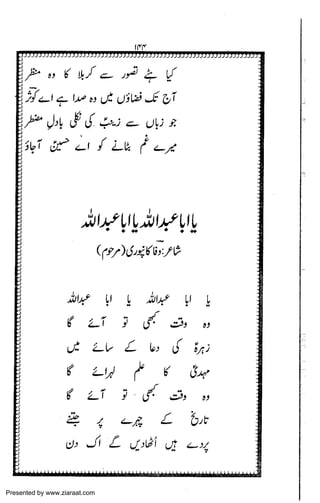 ۱۴۴
کیا ہٹے تصور سے کربلا کا وہ منظر
آج تک فضاؤں میں وہ صدا ہے اے کوثرؔ
جو زباں سے زینبؑ کی نکلی بادلِ مضطر
میرے غم بٹانے کو اے حسینؑ آ جاؤ
یا ابا عبداللہ یا ابا عبداللہ
شاعر: وفاؔ کانپوری (مرحوم)
یا ابا عبداللہ یا ابا عبداللہ
وہ وقت کبھی تو آئے گا
زہرہؑ کی دعا کے سائے میں
مہدیؑ کا علم لہرائے گا
وہ وقت کبھی تو آئے گا
تاریخ کے چہرے پر جتنے
پردے ہیں اُٹھا دیں گے اک دن
Presented by www.ziaraat.com